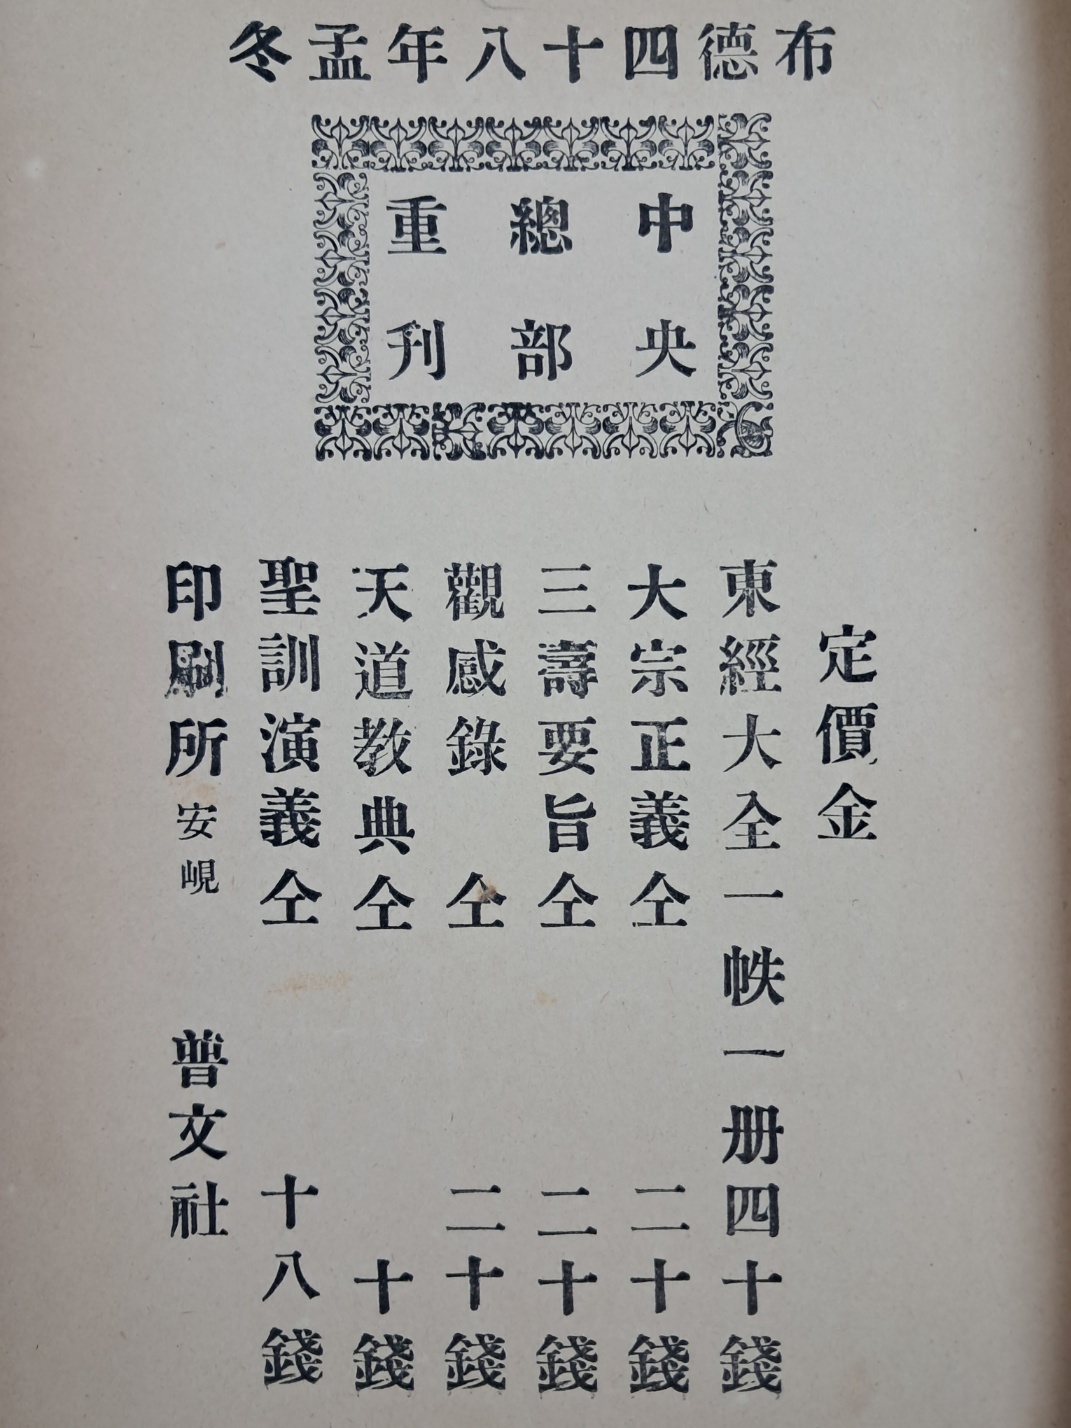 布德四十八年孟冬
中央
總部
重刊
定價金
東經大全一帙一册四十錢
大宗正義仝 二十錢
三壽要旨仝 二十錢
觀感錄 仝 二十錢
天道教典仝 十錢
聖訓演義仝 十八錢
印刷所 安峴 普文社